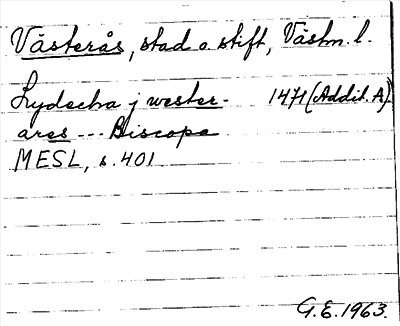 Västerås, stad o. stift, Västm. l.
Lydecha j wester- 1471 (Addit. A)
ares --- Biscopa
MESL, s. 401
G.E. 1963.